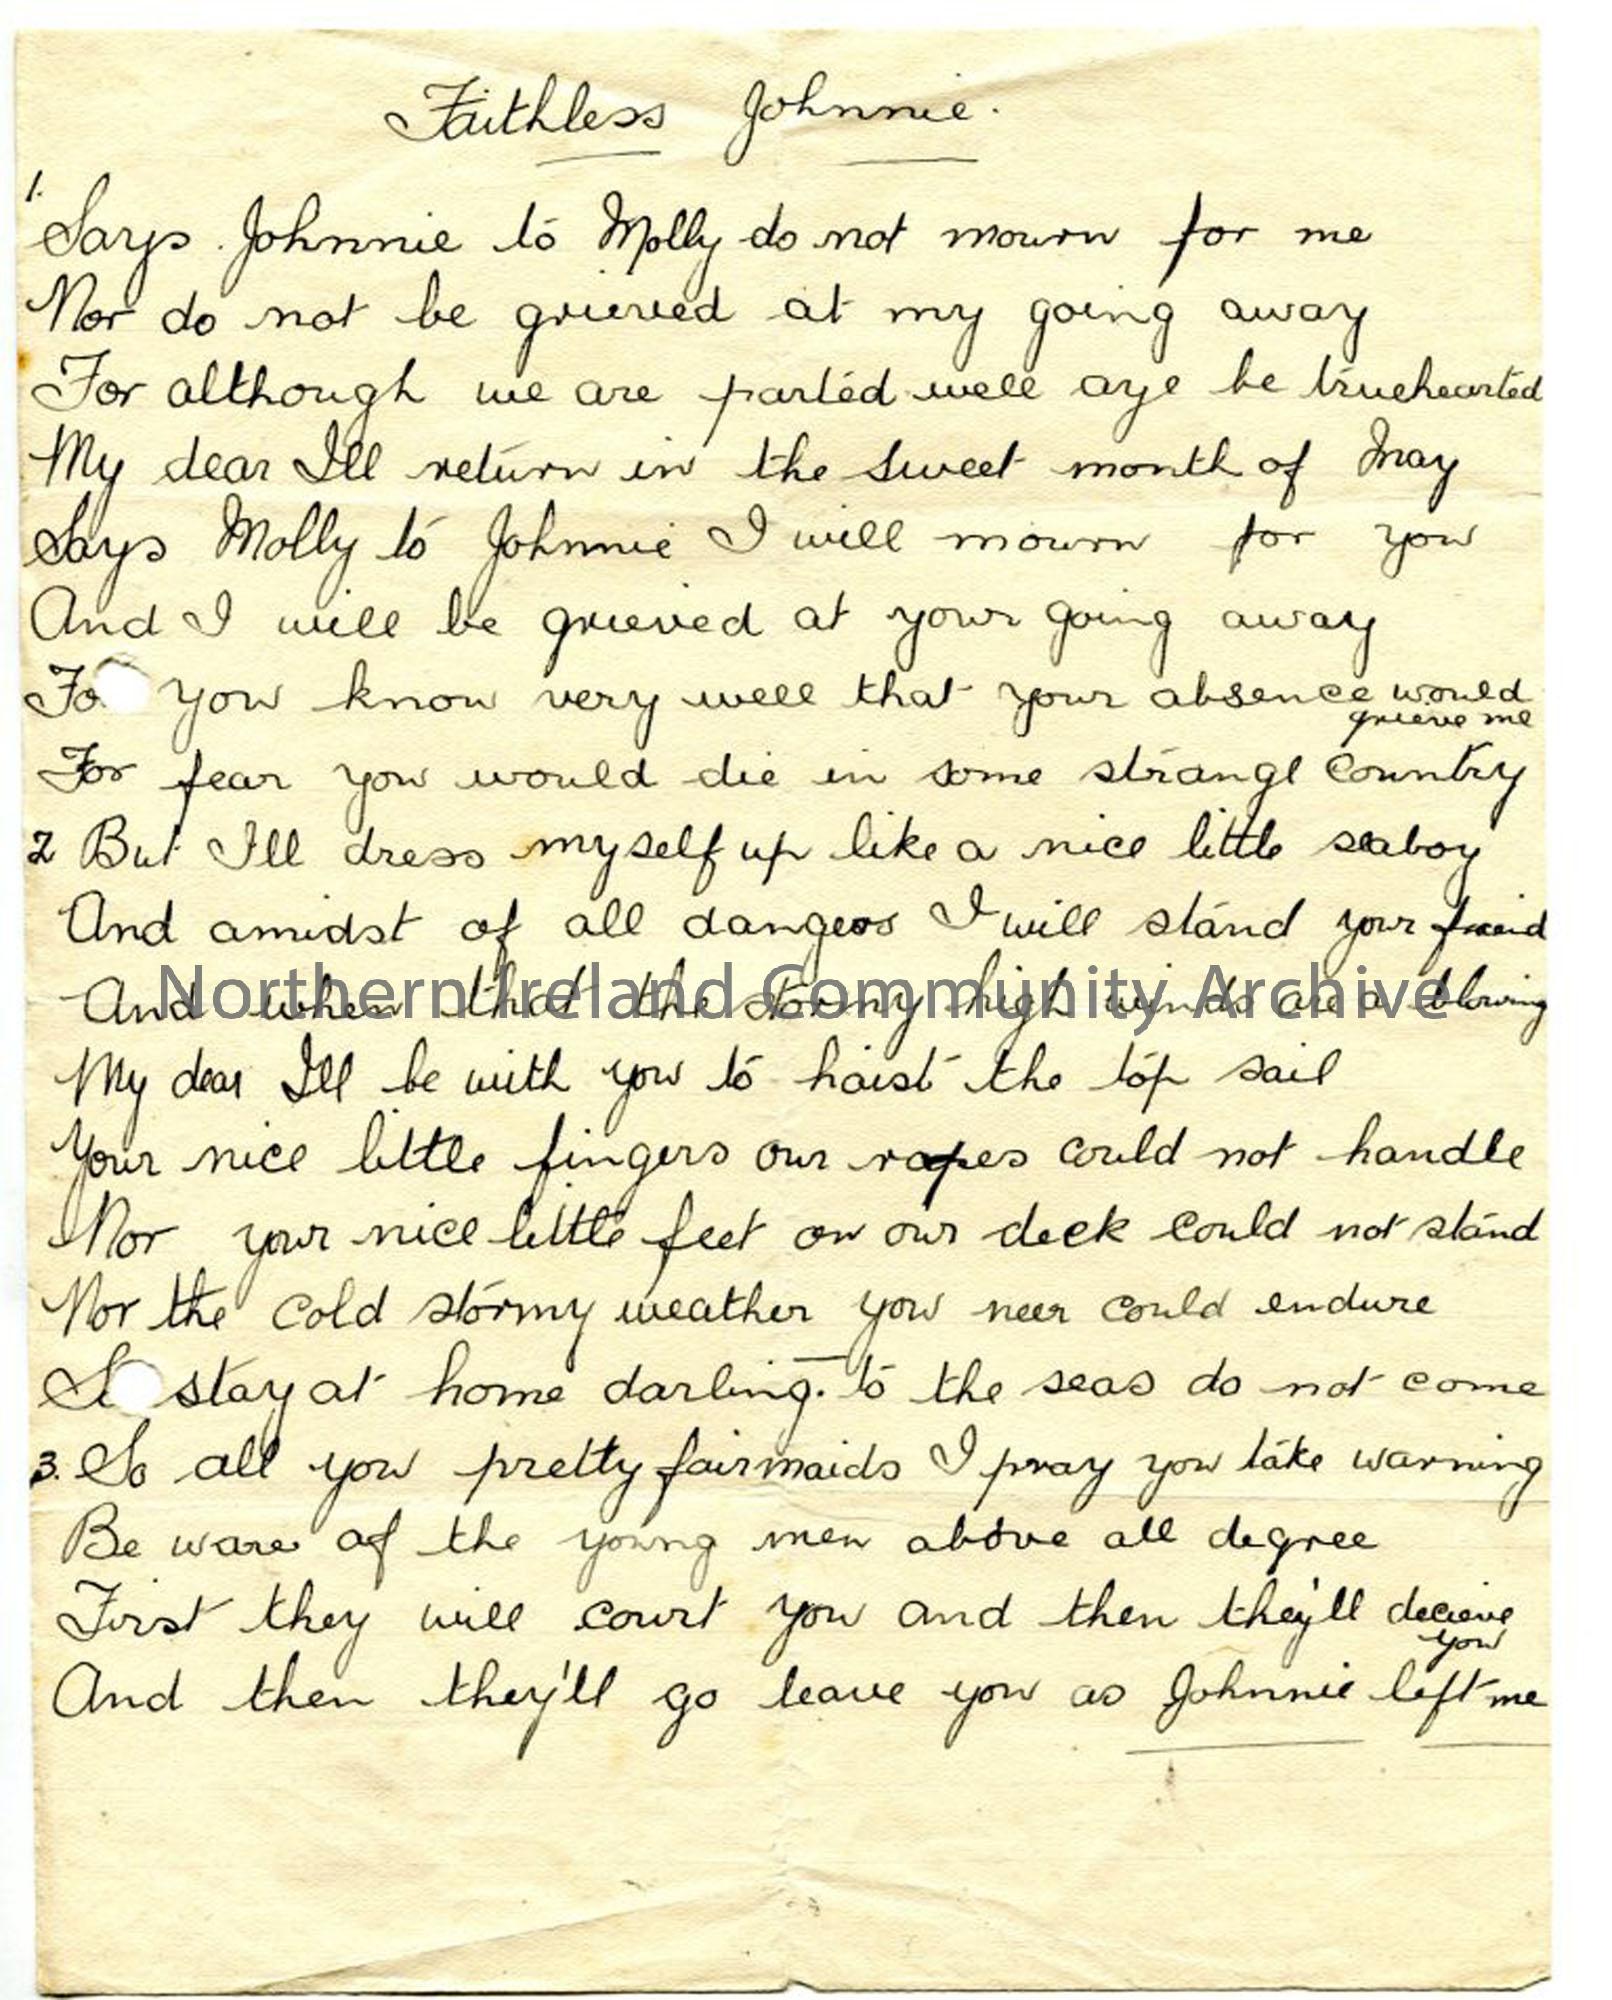 Faithless Johnnie.
1.
Says Johnnie to Molly do not mourn for me
Nor do not be grieved at my going away
For although we are parted well aye be truehearted
My dear I'll return in the sweet month of May
Says Molly to Johnnie I will mourn for you
And I will be grieved at your going away
Fo you know very well that your absence would
grieve me
For fear you would die in some strange country
2 But I'll dress myself up like a nice little seaboy
And amidst of all dangers I will stand your friend
And when that the stormy high winds are a blowing
Northern Ireland Community Archive
My dear I'll be with you to hoist the top sail
Your nice little fingers our ropes could not handle
Nor your nice little feet on our deck could not stand
Nor the cold stormy weather you neer could endure
So stay at home darling. to the seas do not come
3. So all you pretty fairmaids I pray you take warning
Be ware of the young men above all degree
First they will court you and then they'll decieve
you
And then they'll go leave you as Johnnie left me